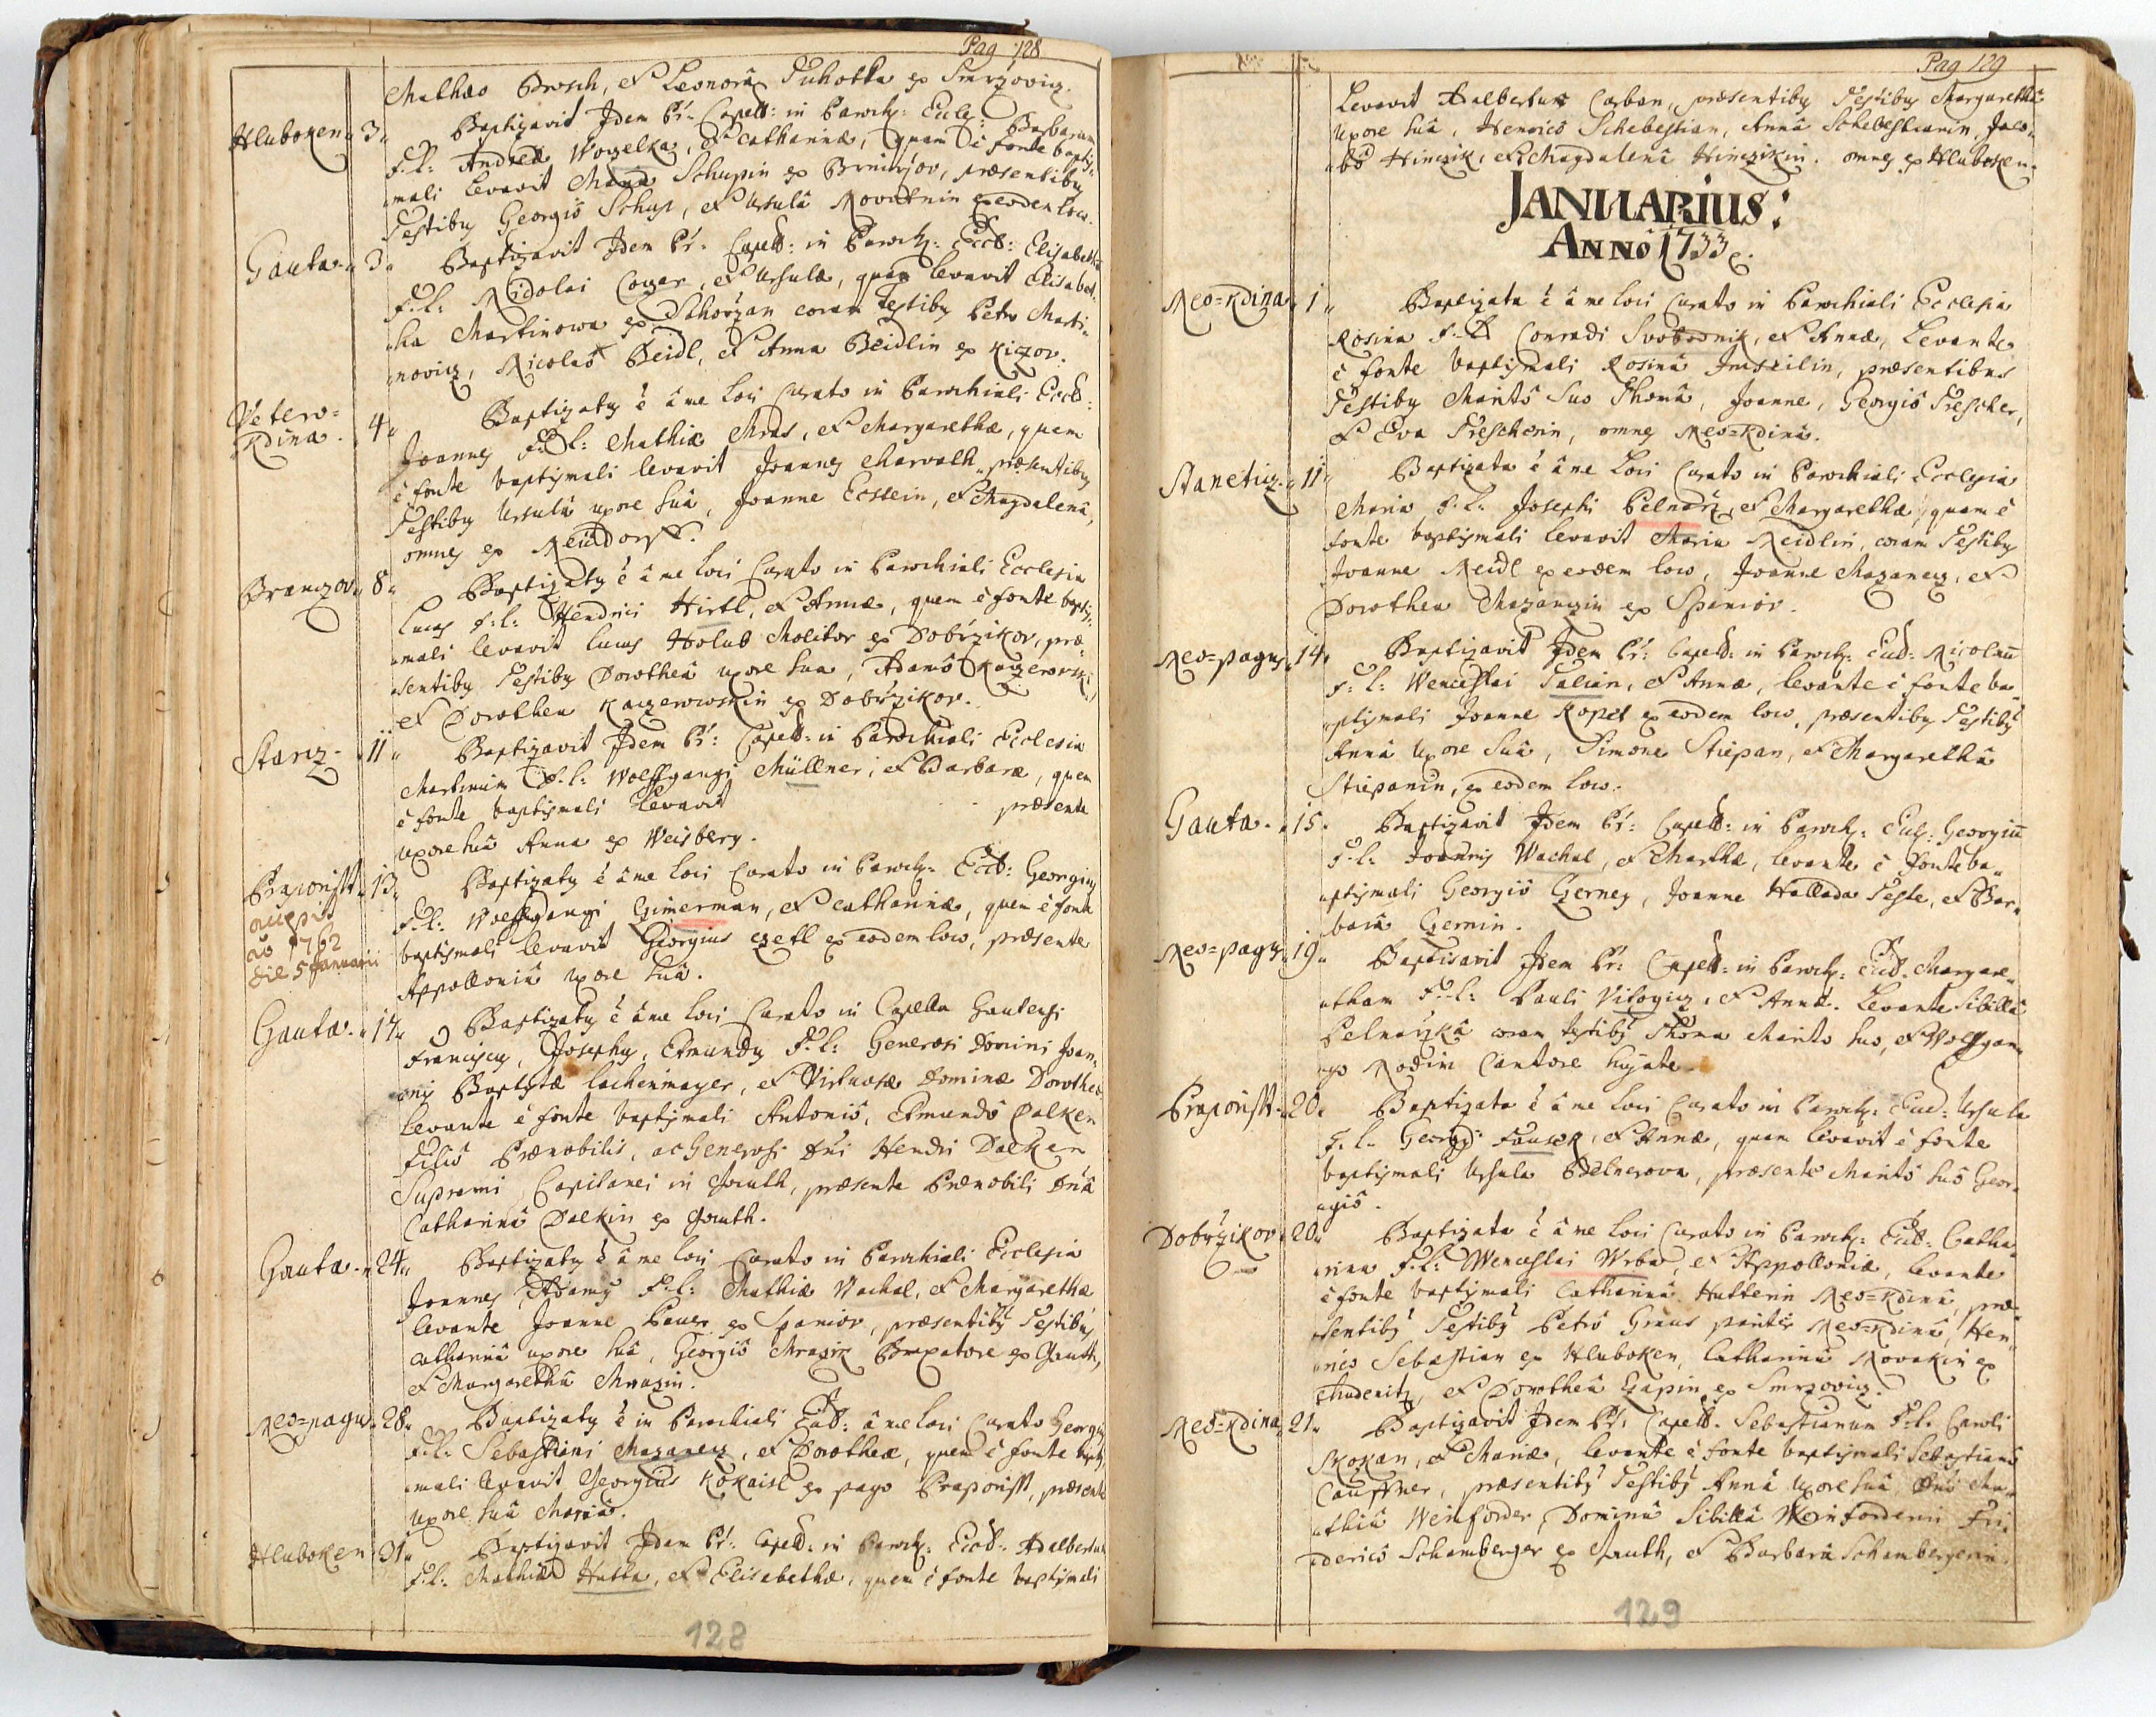 Pag 128
Mathæo Brosch, et Leonora Tuhotka ex Smrzovicz.
Hluboken 3 Baptizavit Idem Pr: Capell: in Paroch: Eccl: Barbaram
F: L: Andreæ Wogelka, et Catharinæ, quam è fonte baptis-
mali levavit Schupin ex præsentibus
Testibus Georgio Schup, et Ursulâ Novotnin ex eodem loco.
Gauta 3 Baptizavit Idem Pr: Capell: in Paroch: Eccl: Elisabetha
F: L: Nicolai et Ursulæ, quam levavit Elisabet-
ha Martinowa ex coram testibus Petro Marti-
novicz, Nicolao Beidl, et Anna Beidlin ex Kiczov.
Vetero-
Kdina 4 Baptizatus è à me loci Curato in Parochiali Eccl:
Joannes F: L: Mathiæ Mras, et Margarethæ, quem
è fonte baptismali levavit Joannes Marvalh præsentibus
Testibus Ursulâ uxore suâ, Joanne Eckstein, et Magdalenâ,
omnes ex Neudorff.
Branczov 8 Baptizatus è à me loci Curato in Parochiali Ecclesia
Lucas F: L: Hendrici Hirtl, et Annæ, quem è fonte baptis-
mali levavit Lucas Holub Molitor ex Dobrzikov, præ-
sentibus Testibus Dorotheâ uxore sua, Adamô
et Dorothea ex Dobrzikov.
Stanz 11 Baptizavit Idem Pr: Capell: in Parochiali Ecclesia
Martinum F: L: Wolffgangi Müllner, et Barbaræ, quem
è fonte baptismali levavit præsente
uxore suâ Anna ex Weisberg.
Praporisst 13 Baptizatus è à me loci Curato in Paroch: Eccl: Georgius
F: L: Wolffgangi Czimerman, et Catharinæ, quem è fonte
baptismali levavit Georgius Czetl ex eodem loco, præsente
Appolloniâ uxore suâ.
ao 1762
die 5 Januarii
Gauta 17 Baptizatus è à me loci Curato in Capella Gautensi
Franciscus, Josephus, Edmundus F: L: Generosi Domini Joan-
nis Baptistæ Lachenmayer, et Virtuosæ Dominæ Dorotheæ
levante è fonte baptismali Antoniô, Edmundô Dalken
Filiô Prænobilis, ac Generosi Dni Hendri Dalken
Supremi Capitanei in Gauth, præsente Prænobili Dnâ
Catharinâ Dalkin ex Gauth.
Gauta 24 Baptizatus è à me loci Curato in Parochiali Ecclesia
Joannes Adamus F: L: Mathiæ Wachal, et Margarethæ
levante Joanne Bauer ex Spaniov, præsentibus Testibus
Catharinâ uxore suâ, Georgiô Mrazik ex Gauth,
et Margarethâ Mrazin.
Neo-pagus 28 Baptizatus è in Parochiali Eccl: à me loci Curato Georgius
F: L: Sebastiani Mazanecz, et Dorotheæ, quem è fonte baptis-
mali levavit Georgius Kokaisl ex pago Praporisst, præsente
uxore suâ Mariâ.
Hluboken 31 Baptizavit Idem Pr: Capell: in Paroch: Eccl: Adalbertum
F: L: Mathiæ Hutta, et Elisabethæ, quem è fonte baptismali
128
Pag 129
Levavit Adalbertus Corban, præsentibus Testibus Margarethâ
uxore suâ, Henricô Schebestian, Annâ Schebestianin, Jaco-
bô Hinczik, et Magdalenâ Hinczikin. omnes ex Hluboken.
JANUARIUS:
ANNO 1733
Neo-Kdina 1 Baptizata è à me loci Curato in Parochiali Ecclesia
Rosina F: L: Conradi Svobodnik, et Annæ, Levante
è fonte baptismali Rosinâ præsentibus
Testibus Maritô Suo Thomâ, Joanne, Georgiô Trescher,
et Eva Trescherin, omnes Neo-Kdinâ.
Stanetiz 11 Baptizata è à me Loci Curato in Parochiali Ecclesia
Maria F: L: Josephi Pelnarz, et Margarethæ, quam è
fonte baptismali levavit Maria Neidlin, coram Testibus
Joanne Neidl ex eodem loco, Joanne Mazanecz, et
Dorothea Mazanczin ex Spaniov.
Neo-pagus 14 Baptizavit Idem Pr: Capell: in Paroch: Eccl: Nicolaum
F: L: Wenceslai Talian, et Annæ, levante è fonte ba-
ptismali Joanne Kopet ex eodem loco, præsentibus Testibus
Annâ Uxore Suâ, Simone Stiepan, et Margarethâ
Stiepanin, ex eodem loco.
Gauta 15 Baptizavit Idem Pr: Capell: in Paroch: Eccl: Georgium
F: L: Joannis Wachal, et Marthæ, levante è fonte ba-
ptismali Georgiô Czerney, Joanne Hallada Teste, et Bar-
bara Czernin.
Neo-pagus 19 Baptizavit Idem Pr: Capell: in Paroch: Eccl: Margare-
tham F: L: Pauli Vitogicz, et Annæ. Levante Sibillâ
Pelnarzkâ coram testibus Thoma Marito suo, et Wolffgan-
go Nodin Cantore hujate.
Praporisst 20 Baptizata è à me loci Curato in Paroch: Eccl: Ursula
F: L: Georgy Fausek, et Annæ, quam levavit è fonte
baptismali Ursula Pelnerova, præsente Maritô suô Geor-
giô.
Dobrzikov 20 Baptizata è à me loci Curato in Paroch: Eccl: Catha-
rina F: L: Wenceslai Wrba, et Appolloniæ, levante
è fonte baptismali Catharinâ Hutterin Neo-Kdinâ, præ-
sentibus Testibus Petrô Graus Neo-Kdinâ, Hen-
rico Sebastian ex Hluboken, Catharinâ Novakin ex
Chudenitz, et Dorotheâ Czapin ex Smrzovicz.
Neo-Kdina 21 Baptizavit Idem Pr: Capell: Sebastianum F: L: Caroli
Skokan, et Mariæ, levante è fonte baptismali Sebastianô
Cauffner, præsentibus Testibus Annâ Uxore suâ, Dno Ma-
thiâ Weinforder, Dominâ Sibillâ Weinforderin Fri-
dericô Schamberger ex Gauth, et Barbarâ Schambergerin.
129